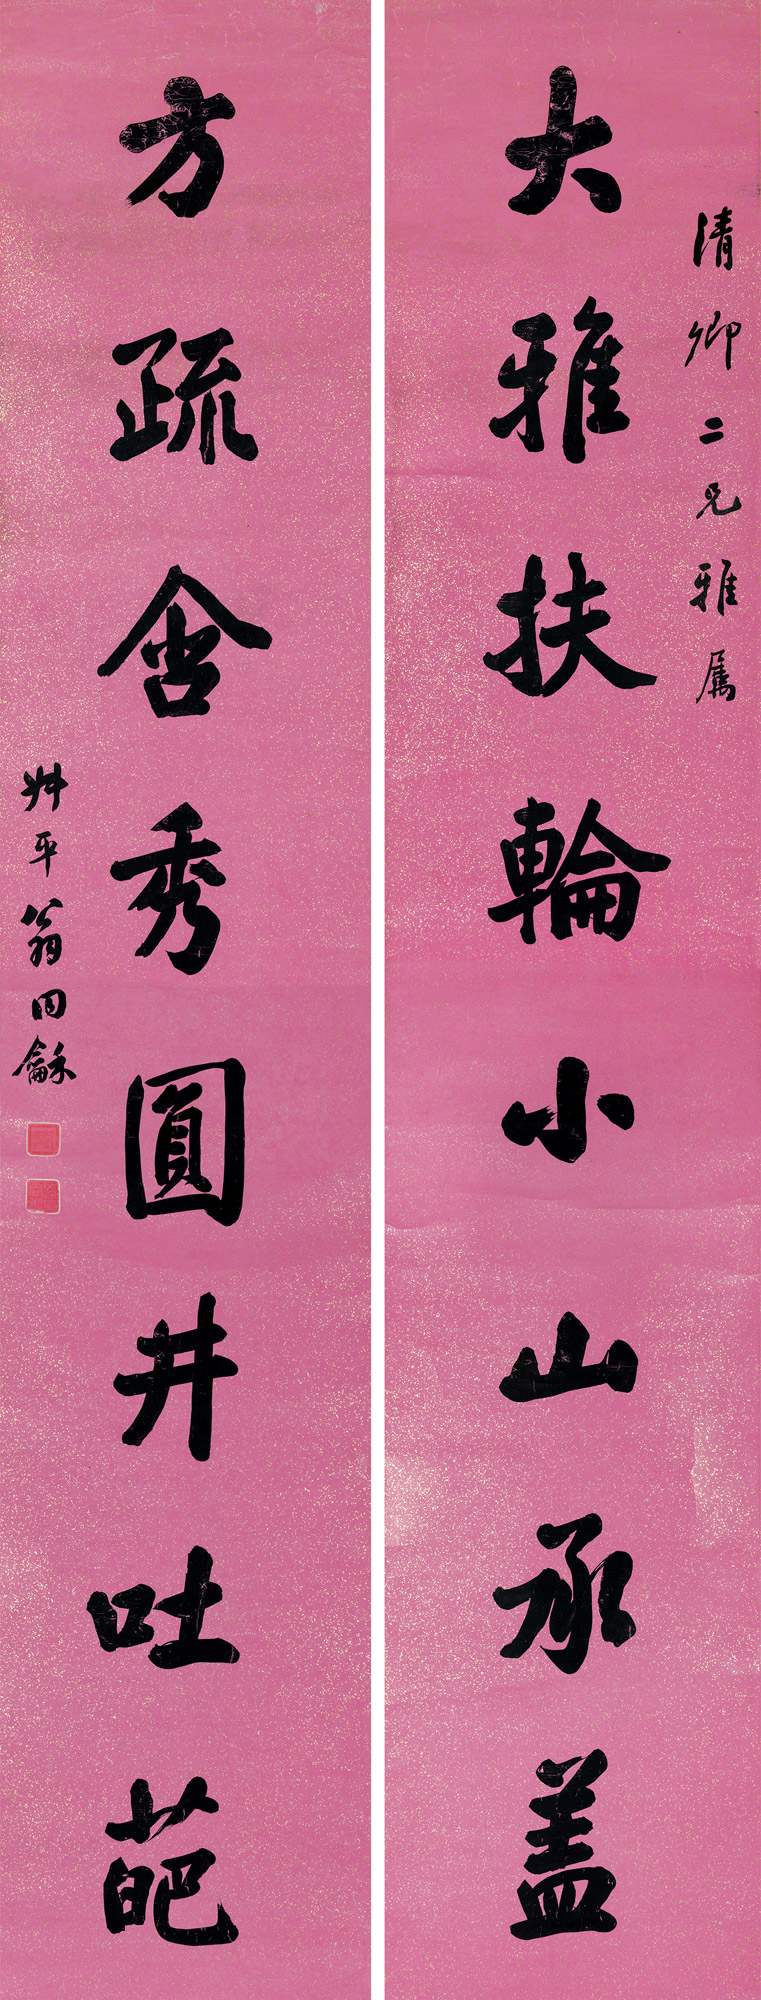 清卿二兄雅属
大雅扶輪小山承盖
方疏含秀圓井吐葩
叔平翁同龢